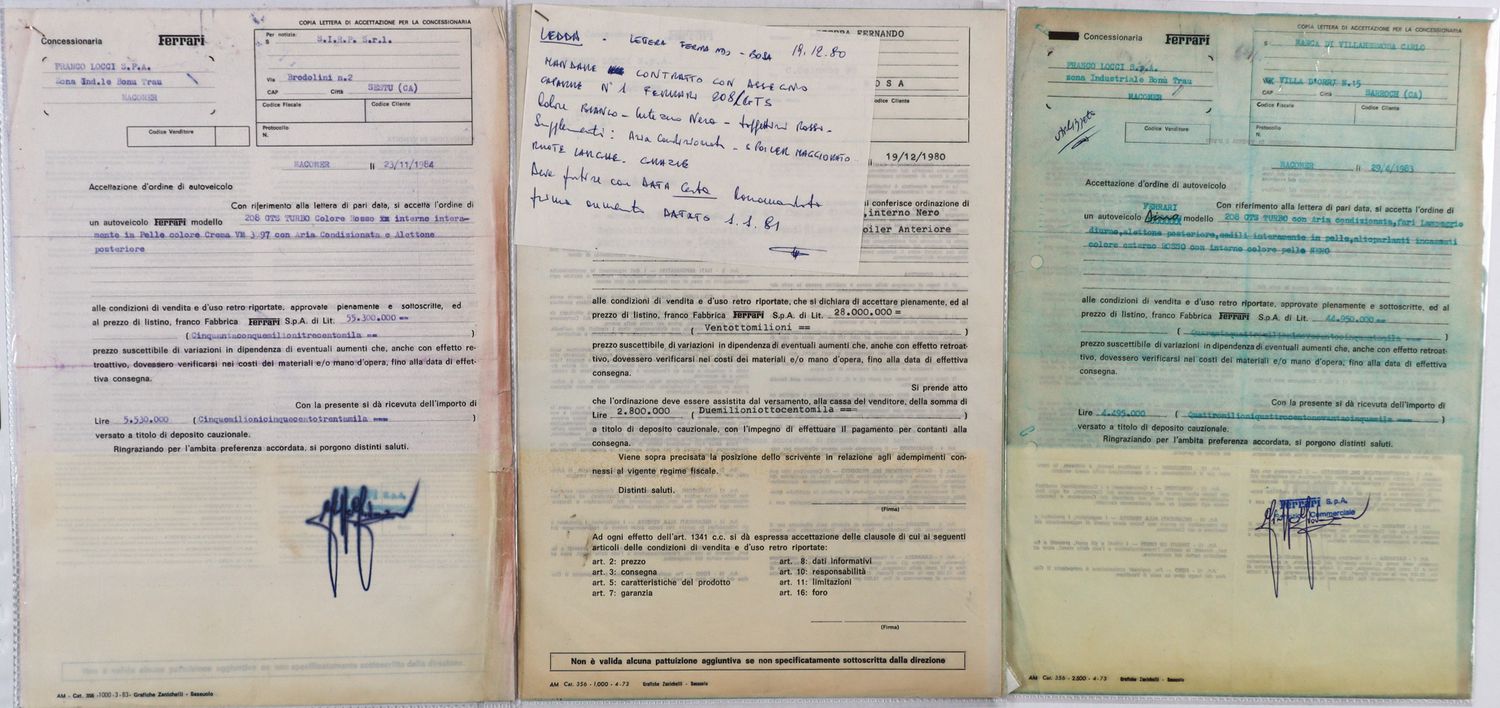 COPIA LETTERA DI ACCETTAZIONE PER LA CONCESSIONARIA
Concessionaria Ferrari
FRANCO LOCCI S.P.A.
Zona Ind.le Bonu Trau
MACOMER
Per notizia:
S S.I.R.P. S.r.l.
Via Bredolini n.2
CAP Città SESTU (CA)
Codice Fiscale Codice Cliente
Protocollo
N.
Codice Venditore
MACOMER li 23/11/1984
Accettazione d'ordine di autoveicolo
Con riferimento alla lettera di pari data, si accetta l'ordine di
un autoveicolo Ferrari modello 208 GTS TURBO Colore Rosso xx interno intera-
mente in Pelle colore Crema VM 3997 con Aria Condizionata e Alettone
posteriore
alle condizioni di vendita e d'uso retro riportate, approvate pienamente e sottoscritte, ed
al prezzo di listino, franco Fabbrica Ferrari S.p.A. di Lit. 55.300.000 ==
(Cinquantacinquemilionitrecentomila == )
prezzo suscettibile di variazioni in dipendenza di eventuali aumenti che, anche con effetto re-
troattivo, dovessero verificarsi nei costi dei materiali e/o mano d'opera, fino alla data di effet-
tiva consegna.
Con la presente si dà ricevuta dell'importo di
Lire 5.530.000 ( Cinquemilionicinquecentotrentamila === )
versato a titolo di deposito cauzionale.
Ringraziando per l'ambita preferenza accordata, si porgono distinti saluti.
Non è valida alcuna pattuizione aggiuntiva se non specificatamente sottoscritta dalla direzione.
AM - Cat. 356 -1000-3-83- Grafiche Zanichelli - Sassuolo
LEDDA - LETTERA FERMA NDO - BOSA 19.12.80
MANDARE CONTRATTO CON ASSEGNO
CAPARRA N° 1 FERRARI 208/GTS
Colore BIANCO - Interno Nero - Tappetini Rossi -
Supplementi: Aria Condizionata - SPOILER MAGGIORATO
RUOTE LARGHE. GRAZIE
Deve partire con DATA Certa Raccomandata
prima aumento DATATO 1.1.81
FERNANDO
OSA
Codice Cliente
19/12/1980
si conferisce ordinazione di
,interno Nero
oiler Anteriore
alle condizioni di vendita e d'uso retro riportate, che si dichiara di accettare pienamente, ed al
prezzo di listino, franco Fabbrica Ferrari S.p.A. di Lit. 28.000.000 =
( Ventottomilioni == )
prezzo suscettibile di variazioni in dipendenza di eventuali aumenti che, anche con effetto retroat-
tivo, dovessero verificarsi nei costi dei materiali e/o mano d'opera, fino alla data di effettiva
consegna.
Si prende atto
che l'ordinazione deve essere assistita dal versamento, alla cassa del venditore, della somma di
Lire 2.800.000 ( Duemilioniottocentomila === )
a titolo di deposito cauzionale, con l'impegno di effettuare il pagamento per contanti alla
consegna.
Viene sopra precisata la posizione dello scrivente in relazione agli adempimenti con-
nessi al vigente regime fiscale.
Distinti saluti.
(Firma)
Ad ogni effetto dell'art. 1341 c.c. si dà espressa accettazione delle clausole di cui ai seguenti
articoli delle condizioni di vendita e d'uso retro riportate:
art. 2: prezzo art. 8: dati informativi
art. 3: consegna art. 10: responsabilità
art. 5: caratteristiche del prodotto art. 11: limitazioni
art. 7: garanzia art. 16: foro
(Firma)
Non è valida alcuna pattuizione aggiuntiva se non specificatamente sottoscritta dalla direzione
AM Cat. 356 - 1.000 - 4-73 Grafiche Zanichelli - Sassuolo
COPIA LETTERA DI ACCETTAZIONE PER LA CONCESSIONARIA
Concessionaria Ferrari
FRANCO LOCCI S.P.A.
zona Industriale Bonu Trau
MACOMER
S MANCA DI VILLAHERMOSA CARLO
VIA VILLA D'ORRI N.15
CAP Città SARROCH (CA)
Codice Fiscale Codice Cliente
Protocollo
N.
Codice Venditore
MACOMER li 29/4/1983
Accettazione d'ordine di autoveicolo
Con riferimento alla lettera di pari data, si accetta l'ordine di
FERRARI
un autoveicolo Dino modello 208 GTS TURBO con Aria condizionata,fari Lampeggio
diurno,alettone posteriore,sedili interamente in pelle,altoparlanti incassati
colore esterno ROSSO con interno colore pelle NERO
alle condizioni di vendita e d'uso retro riportate, approvate pienamente e sottoscritte, ed al
prezzo di listino, franco Fabbrica Ferrari S.p.A. di Lit. 44.950.000 ==
prezzo suscettibile di variazioni in dipendenza di eventuali aumenti che, anche con effetto retroat-
tivo, dovessero verificarsi nei costi dei materiali e/o mano d'opera, fino alla data di effettiva
consegna.
Con la presente si dà ricevuta dell'importo di
Lire 4.495.000 ( Quattromilioniquattrocentonovantacinquemila == )
versato a titolo di deposito cauzionale.
Ringraziando per l'ambita preferenza accordata, si porgono distinti saluti.
Ferrari S.p.A.
Commerciale
AM - Cat. 356 - 2.500 - 4-73 Grafiche Zanichelli - Sassuolo